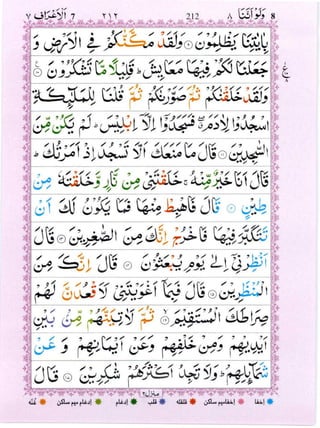 ٧ اَلْاَعْرَاف 7 ٢١٢ 212 ٨ وَلَوْ اَنَّنَا 8
بِاٰيٰتِنَا يَظْلِمُوْنَ ۹ وَلَقَدْ مَكَّنّٰكُمْ فِي الْاَرْضِ وَ
جَعَلْنَا لَكُمْ فِيْهَا مَعَايِشَ ؕ قَلِيْلًا مَّا تَشْكُرُوْنَ ۱۰
وَلَقَدْ خَلَقْنٰكُمْ ثُمَّ صَوَّرْنٰكُمْ ثُمَّ قُلْنَا لِلْمَلٰٓئِكَةِ
اسْجُدُوْا لِاٰدَمَ ۖ فَسَجَدُوْۤا اِلَّاۤ اِبْلِيْسَ ؕ لَمْ يَكُنْ مِّنَ
السّٰجِدِيْنَ ۱۱ قَالَ مَا مَنَعَكَ اَلَّا تَسْجُدَ اِذْ اَمَرْتُكَ ؕ
قَالَ اَنَا خَيْرٌ مِّنْهُ ۚ خَلَقْتَنِيْ مِنْ نَّارٍ وَّخَلَقْتَهٗ مِنْ
طِيْنٍ ۱۲ قَالَ فَاهْبِطْ مِنْهَا فَمَا يَكُوْنُ لَكَ اَنْ
تَتَكَبَّرَ فِيْهَا فَاخْرُجْ اِنَّكَ مِنَ الصّٰغِرِيْنَ ۱۳ قَالَ
اَنْظِرْنِيْۤ اِلٰى يَوْمِ يُبْعَثُوْنَ ۱۴ قَالَ اِنَّكَ مِنَ
الْمُنْظَرِيْنَ ۱۵ قَالَ فَبِمَاۤ اَغْوَيْتَنِيْ لَاَقْعُدَنَّ لَهُمْ
صِرَاطَكَ الْمُسْتَقِيْمَ ۱۶ ثُمَّ لَاٰتِيَنَّهُمْ مِّنْۢ بَيْنِ
اَيْدِيْهِمْ وَمِنْ خَلْفِهِمْ وَعَنْ اَيْمَانِهِمْ وَ عَنْ
شَمَآئِلِهِمْ ؕ وَلَا تَجِدُ اَكْثَرَهُمْ شٰكِرِيْنَ ۱۷ قَالَ
منزل ٢
اخفا اخفاء میم ساکن قلقله قلب ادغام ادغام میم ساکن غنّه